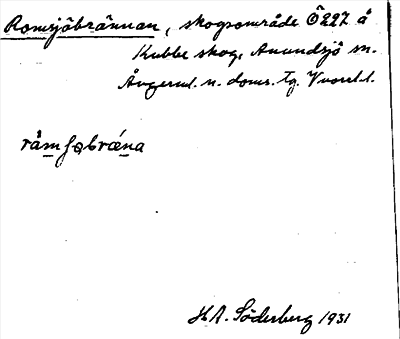 Romsjöbrännan, skogsområde Ö 227 å
Kubbe skog, Anundsjö sn.
Ångerml. n. doms. tg. V norrl. l.
råmʃəbrǽna
H. A. Söderberg 1931